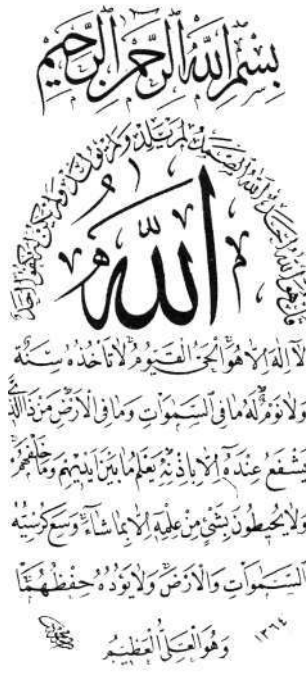 بِسْمِ اللّٰهِ الرَّحْمٰنِ الرَّحِيْمِ
قُلْ هُوَ اللّٰهُ اَحَدٌ اَللّٰهُ الصَّمَدُ لَمْ يَلِدْ وَلَمْ يُولَدْ وَلَمْ يَكُنْ لَهُ كُفُوًا اَحَدٌ
اللّٰهُ
لَا اِلٰهَ اِلَّا هُوَ الْحَيُّ الْقَيُّومُ لَا تَأْخُذُهُ سِنَةٌ
وَلَا نَوْمٌ لَهُ مَا فِي السَّمٰوَاتِ وَمَا فِي الْاَرْضِ مَنْ ذَا الَّذِي
يَشْفَعُ عِنْدَهُ اِلَّا بِاِذْنِهِ يَعْلَمُ مَا بَيْنَ اَيْدِيهِمْ وَمَا خَلْفَهُمْ
وَلَا يُحِيطُونَ بِشَيْءٍ مِنْ عِلْمِهِ اِلَّا بِمَا شَاءَ وَسِعَ كُرْسِيُّهُ
السَّمٰوَاتِ وَالْاَرْضَ وَلَا يَؤُدُهُ حِفْظُهُمَا
وَهُوَ الْعَلِيُّ الْعَظِيمُ
١٣٦٤